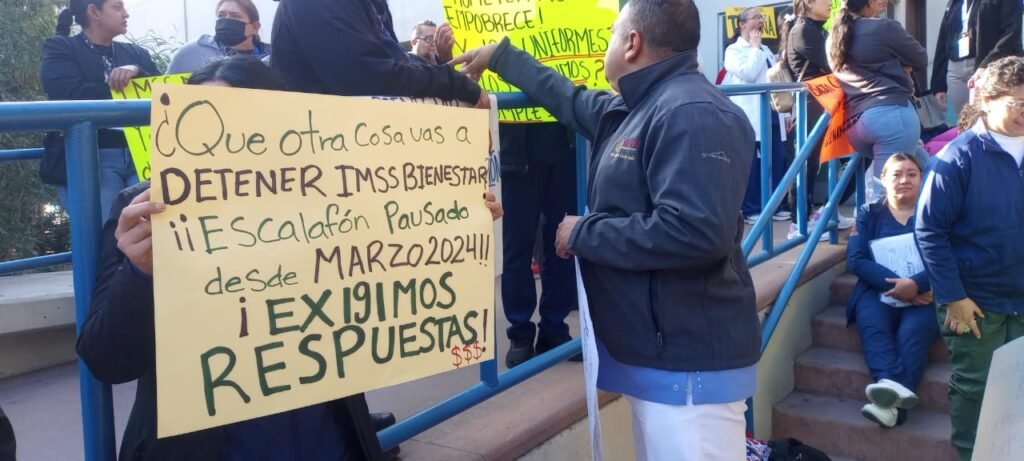 ¿Que otra Cosa vas a
DETENER IMSS BIENESTAR
¡¡Escalafón Pausado
desde MARZO 2024!!
¡EXIGIMOS
RESPUESTAS!
$$$
EMPOBRECE!
UNIFORMES